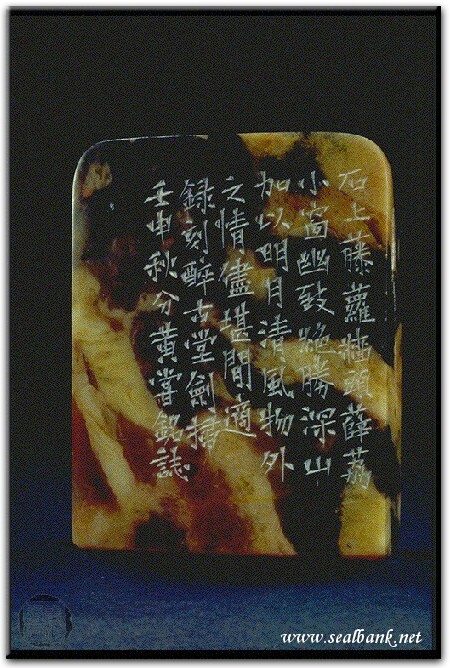 石上藤蘿牆頭薜荔
小窗幽致絶勝深山
加以明月清風物外
之情儘堪間適
錄刻醉古堂劍掃
壬申秋分黃嘗銘誌
www.sealbank.net